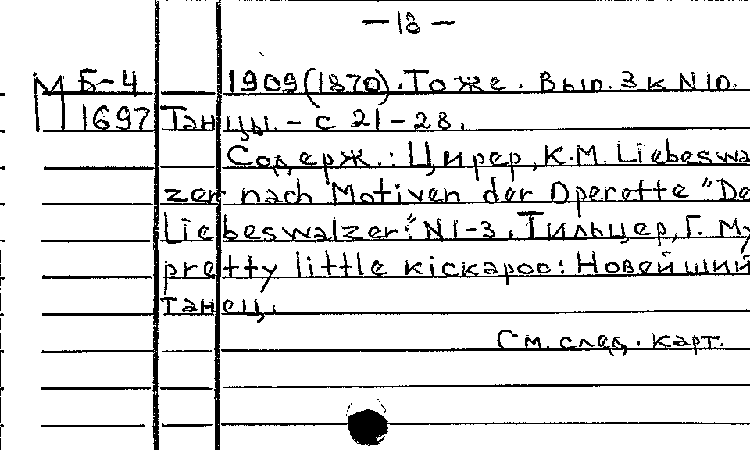 — 18 —
М Б-4 1909 (1870). То же. Вып. 3 к N 10.
1697 Танцы. - с 21-28.
Содерж.: Цирер, К.М. Liebeswa
zer nach Motiven der Operette "De
Liebeswalzer." N1-3. Тильцер, Г. My
pretty little kickapoo: Новейший
танец.
См. след. карт.